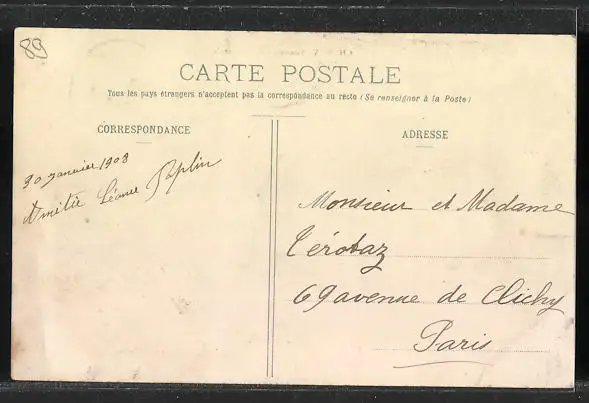 89
CARTE POSTALE
Tous les pays étrangers n'acceptent pas la correspondance au recto (Se renseigner à la Poste)
CORRESPONDANCE
30 janvier 1908
Amitié Léonce Paplin
ADRESSE
Monsieur et Madame
Cérotaz
69 avenue de Clichy
Paris